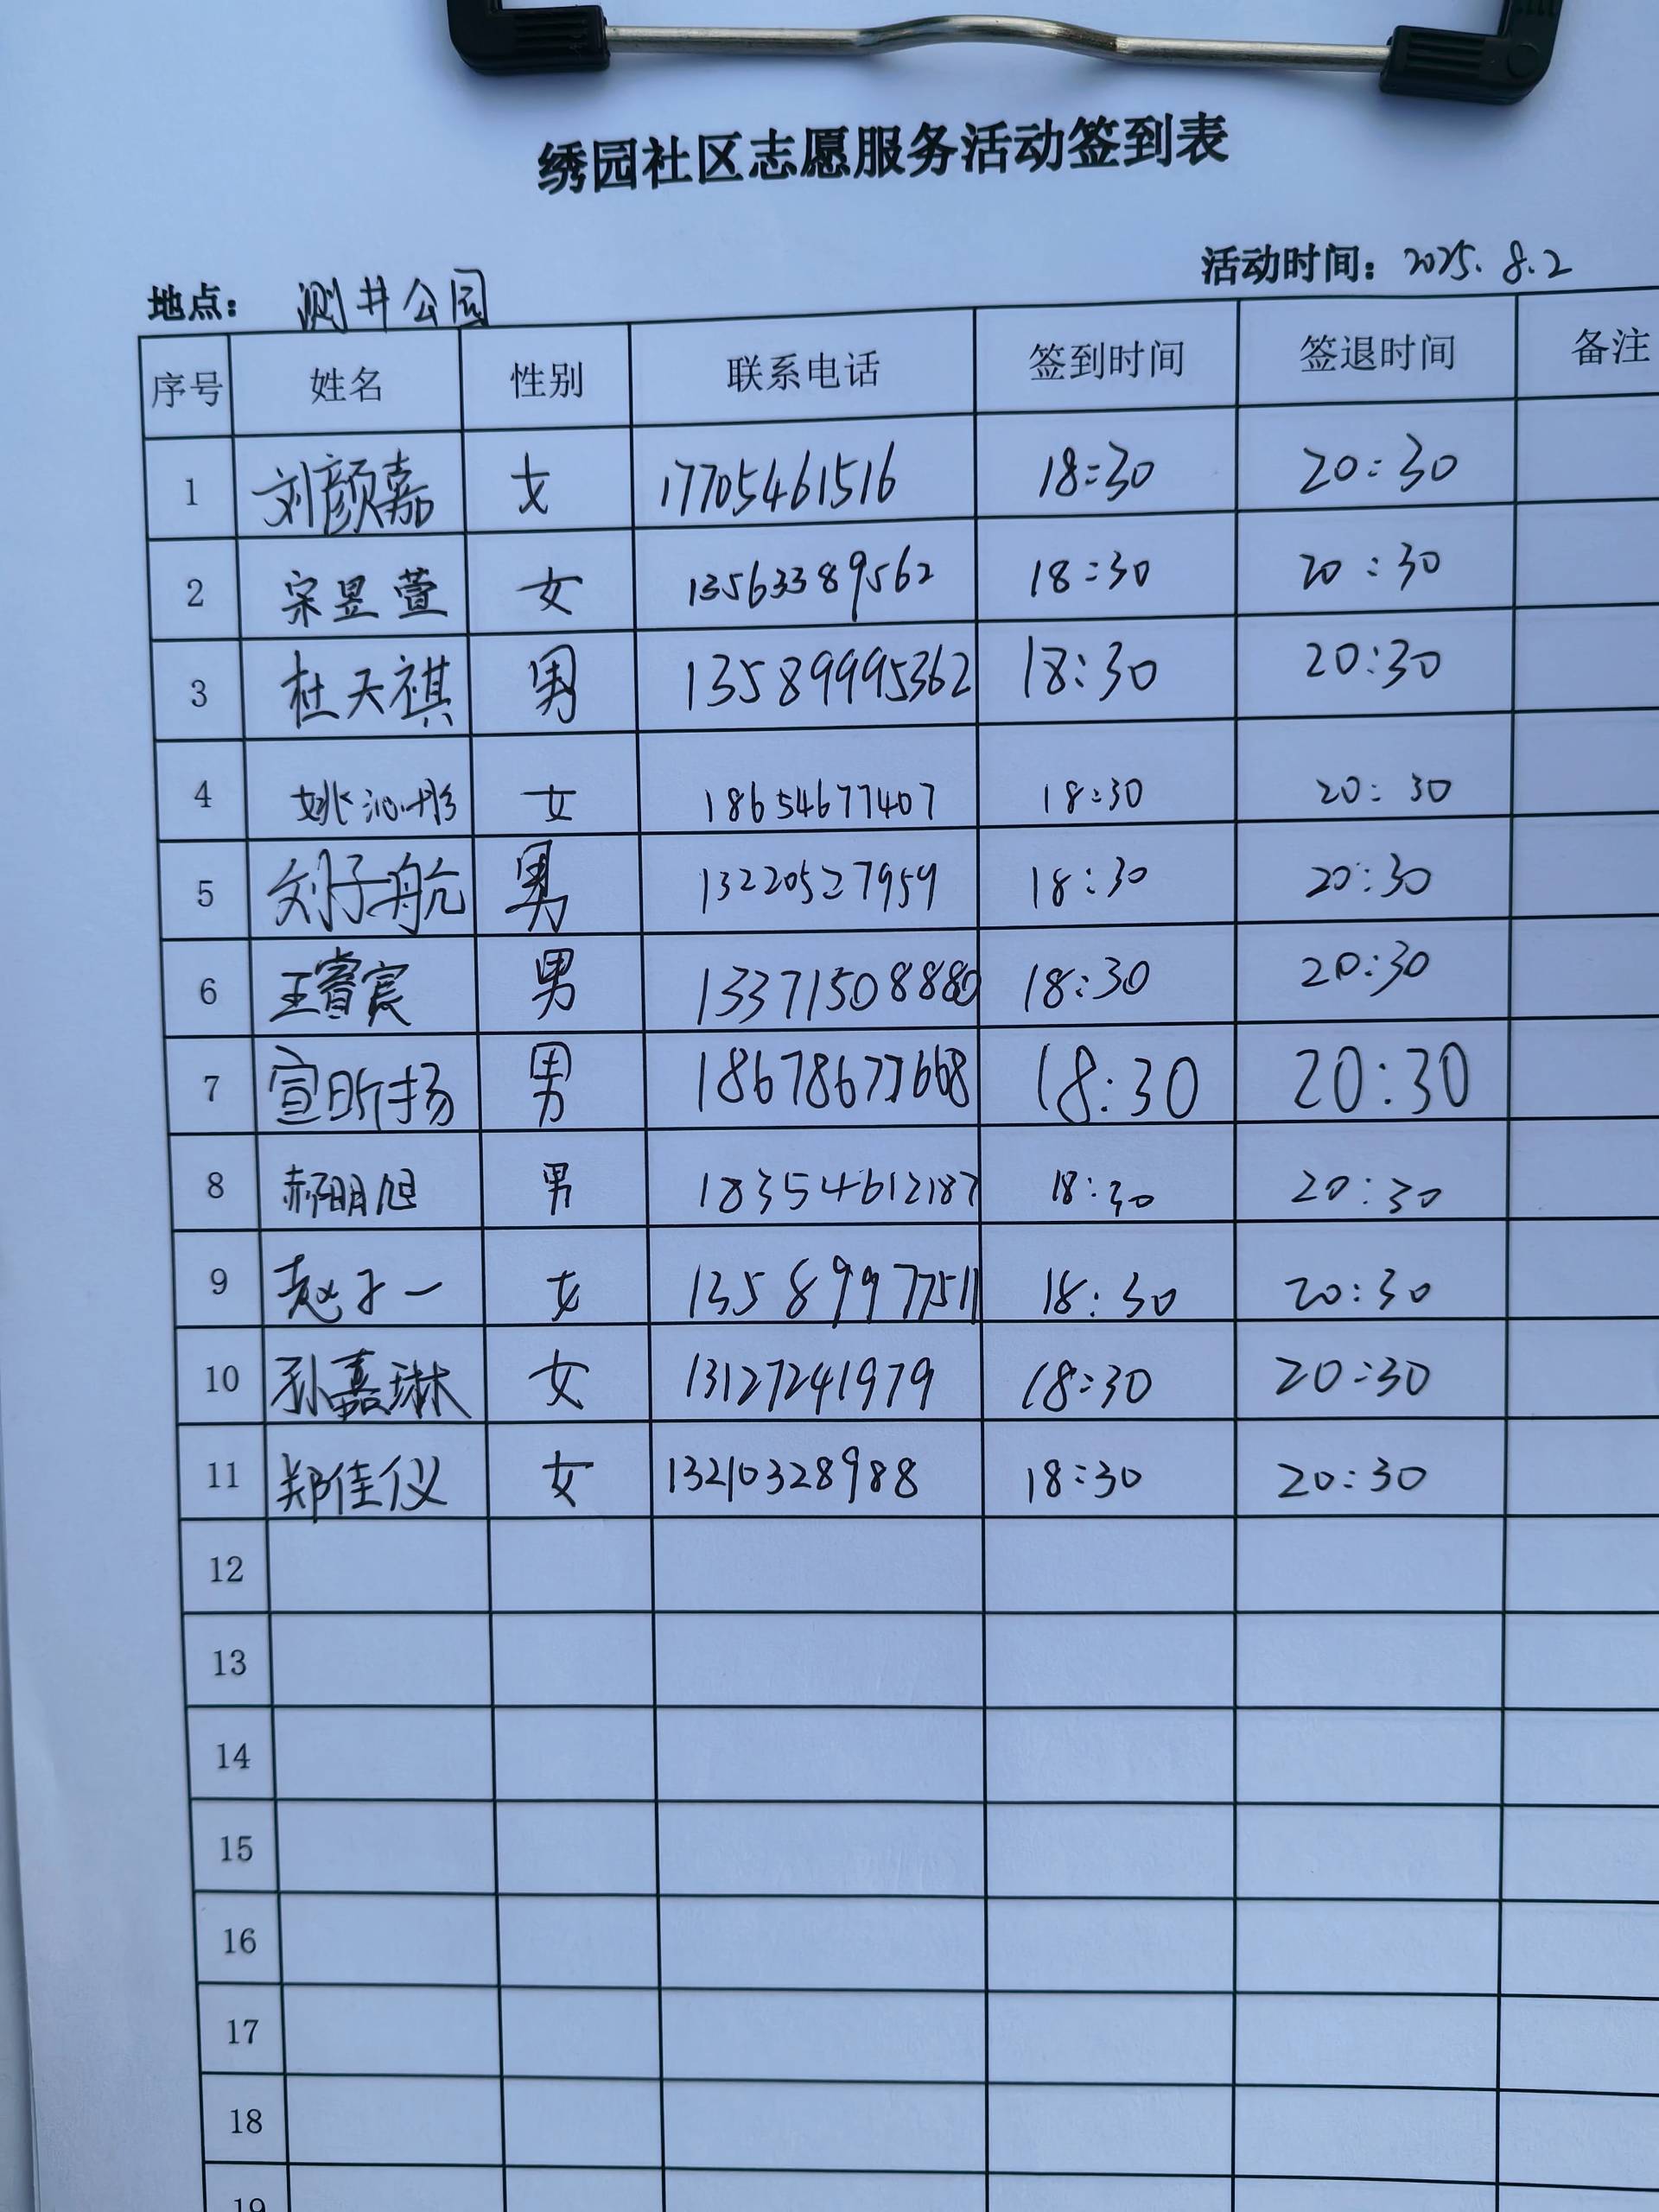 绣园社区志愿服务活动签到表
地点： 测井公园 活动时间：2025.8.2
序号 姓名 性别 联系电话 签到时间 签退时间 备注
1 刘颜嘉 女 17705461516 18:30 20:30
2 宋昱萱 女 13563389562 18:30 20:30
3 杜天祺 男 13589995362 18:30 20:30
4 姚沁彤 女 18654677407 18:30 20:30
5 刘子航 男 13220527959 18:30 20:30
6 王睿宸 男 13371508880 18:30 20:30
7 宣昕扬 男 18678677668 18:30 20:30
8 郝明旭 男 18354612187 18:30 20:30
9 赵子一 女 13589977511 18:30 20:30
10 孙嘉琳 女 13127241979 18:30 20:30
11 郑佳仪 女 13210328988 18:30 20:30
12
13
14
15
16
17
18
19